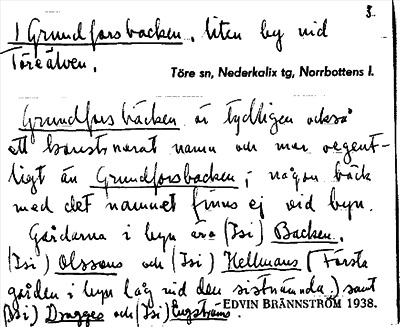 3.
1 Grundforsbacken, liten by vid
Töreälven.
Töre sn, Nederkalix tg, Norrbottens l.
Grundforsbäcken är tydligen också
ett konstruerat namn och mer oegent-
ligt än Grundforsbacken; någon bäck
med det namnet finns ej vid byn.
Gårdarna i byn äro (Isi) Backen,
(Isi) Olssons och (Isi) Hellmans (Första
gården i byn låg vid den sistnämnda.) samt
(Isi) Dragges och (Isi) Engströms.
EDVIN BRÄNNSTRÖM 1938.